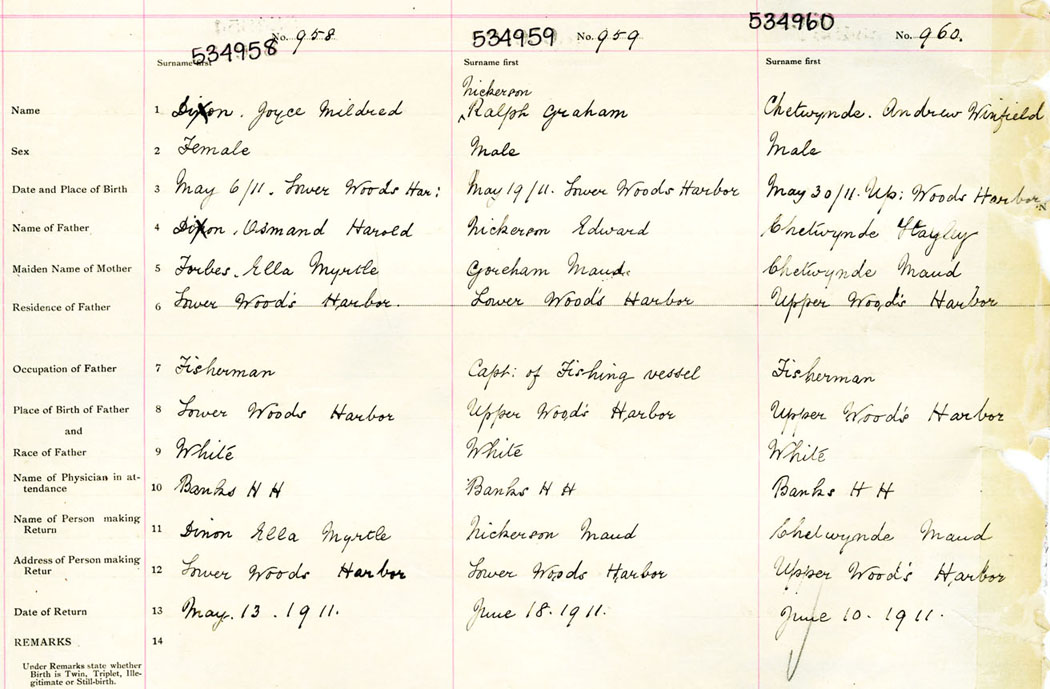 534958 No. 958 534959 No. 959 534960 No. 960.
Surname first Surname first Surname first
Nickerson
Name 1 Dixon. Joyce Mildred Ralph Graham Chetwynde. Andrew Winfield
Sex 2 Female Male Male
Date and Place of Birth 3 May 6/11. Lower Woods Har: May 19/11. Lower Woods Harbor May 30/11. Up: Woods Harbor
Name of Father 4 Dixon. Osmand Harold Nickerson Edward Chetwynde Stayley
Maiden Name of Mother 5 Forbes. Ella Myrtle Goreham Maud. Chetwynde Maud
Residence of Father 6 Lower Wood's Harbor. Lower Wood's Harbor Upper Wood's Harbor
Occupation of Father 7 Fisherman Capt: of Fishing vessel Fisherman
Place of Birth of Father 8 Lower Woods Harbor Upper Wood's Harbor Upper Wood's Harbor
and
Race of Father 9 White White White
Name of Physician in at-
tendance 10 Banks H H Banks H H Banks H H
Name of Person making
Return 11 Dinon Ella Myrtle Nickerson Maud Chetwynde Maud
Address of Person making
Retur 12 Lower Woods Harbor Lower Woods Harbor Upper Wood's Harbor
Date of Return 13 May. 13. 1911. June 18. 1911. June 10. 1911.
REMARKS 14
Under Remarks state whether
Birth is Twin, Triplet, Ille-
gitimate or Still-birth.